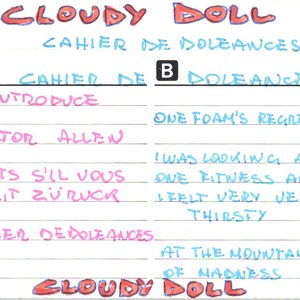 CLOUDY DOLL
CAHIER DE DOLEANCES
CAHIER DE B DOLEANC
NTRODUCE
TOR ALLEN
TS S'ILL VOUS
IT ZÜRUCK
ER DE DOLEANCES
ONE FOAM'S REGRE
I WAS LOOKING A
ONE FITNESS A
I FELT VERY VE
THIRSTY
AT THE MOUNTA
OF MADNESS
CLOUDY DOLL